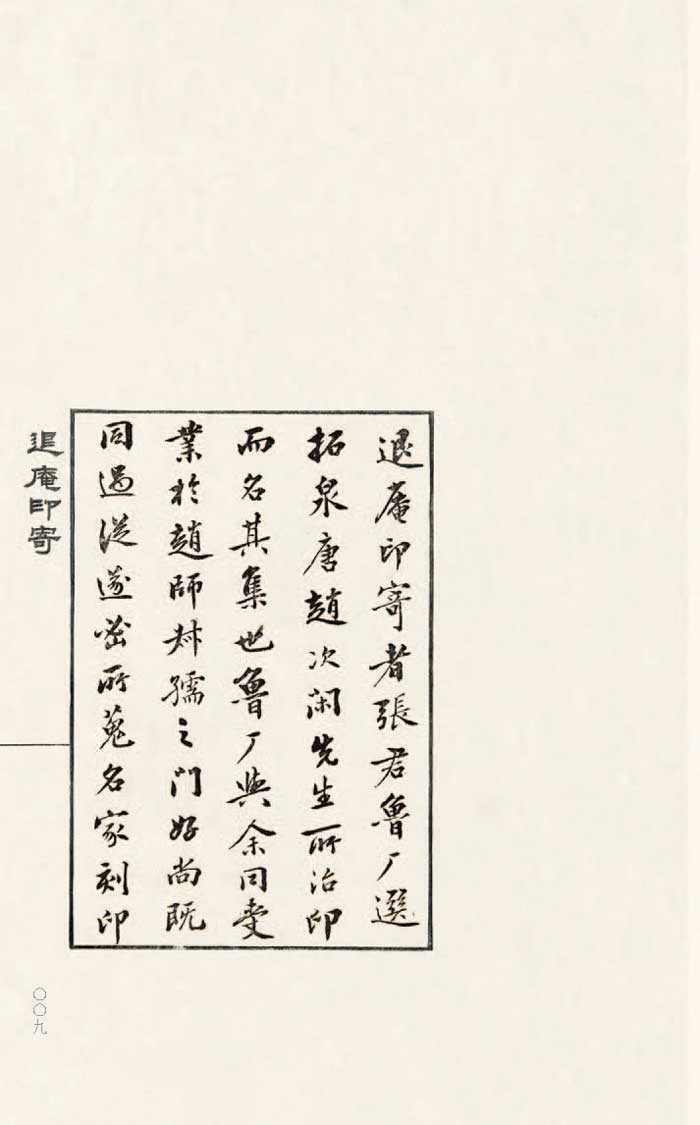 退菴印寄者張君魯厂選
拓泉唐趙次閑先生所治印
而名其集也魯厂與余同受
業於趙師叔孺之門好尚既
同過從遂密所蒐名家刻印
退庵印寄
〇〇九